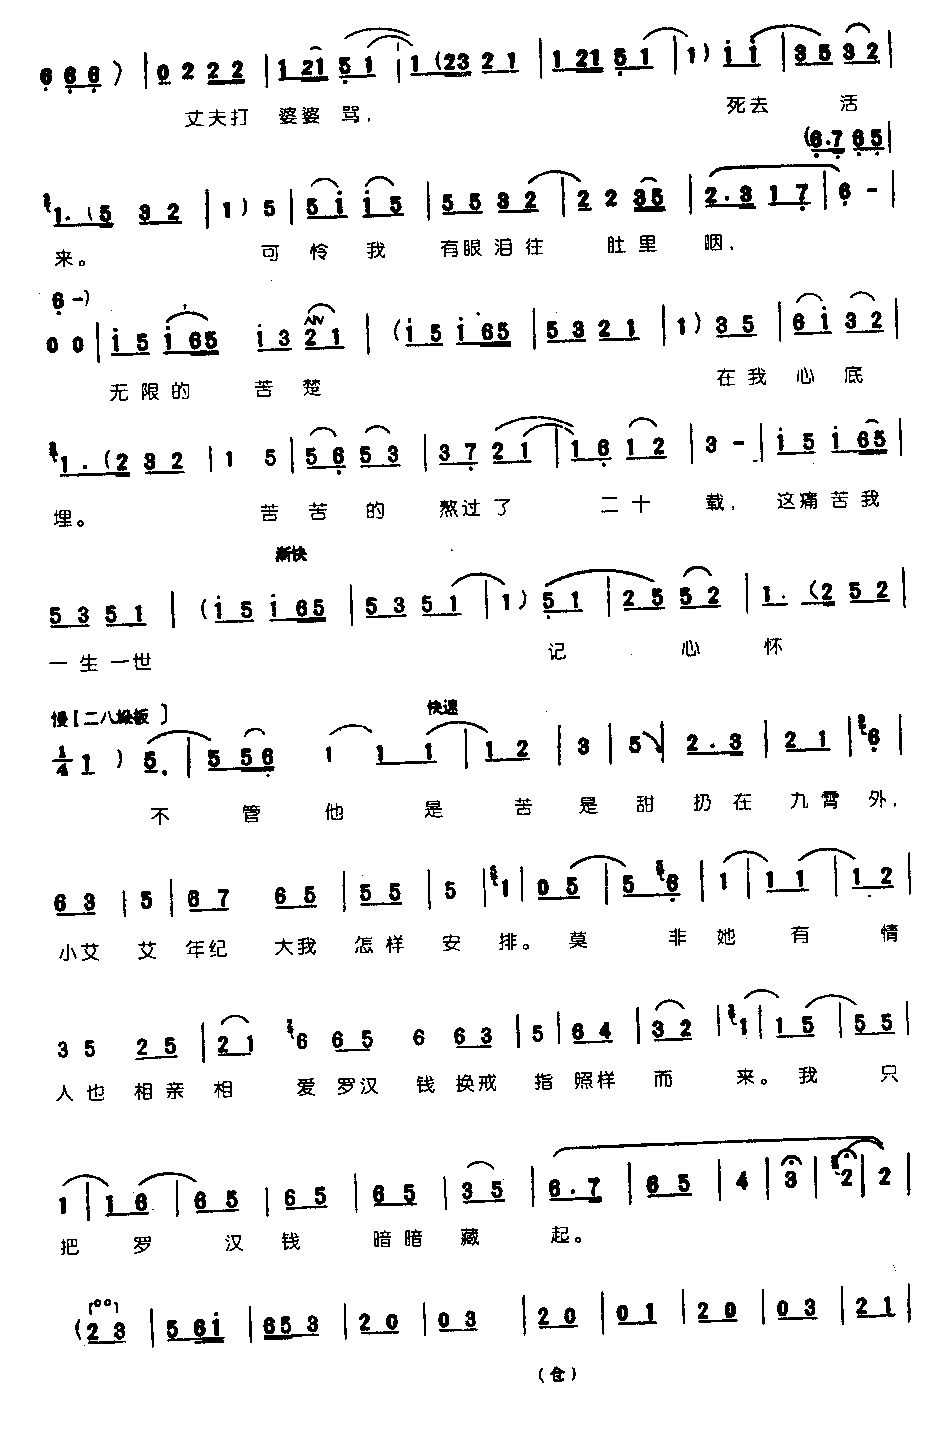 6 6 6 ） | 0 2 2 2 | 1 21 5 1 | 1 (23 2 1 | 1 21 5 1 | 1 ) i i | 3 5 3 2 |
丈夫打 婆婆 骂， 死去 活
(6.7 6 5 |
1.(5 3 2 | 1 ) 5 | 5 i i 5 | 5 5 3 2 | 2 2 3 5 | 2.3 1 7 | 6 - |
来。 可 怜 我 有眼泪往 肚里 咽，
6 -)
0 0 | i 5 i 65 i 3 2 1 | (i 5 i 65 | 5 3 2 1 | 1 ) 3 5 | 6 i 3 2 |
无限的 苦 楚 在我 心 底
1.(2 3 2 | 1 5 | 5 6 5 3 | 3 7 2 1 | 1 6 1 2 | 3 - | i 5 i 65 |
埋。 苦 苦 的 熬过了 二十 载，这痛苦我
渐快
5 3 5 1 | (i 5 i 65 | 5 3 5 1 | 1 ) 5 1 | 2 5 5 2 | 1.(2 5 2 |
一生一世 记 心 怀
慢［二八垛板］ 快速
1/4 1 ) 5. | 5 5 6 1 1 1 | 1 2 | 3 | 5 | 2.3 | 2 1 | 6 |
不 管 他 是 苦 是 甜 扔在 九霄 外，
6 3 | 5 | 6 7 6 5 | 5 5 | 5 | 1 | 0 5 | 5 6 | 1 | 1 1 | 1 2 |
小艾 艾 年纪 大我 怎样 安 排。 莫 非 她 有 情
3 5 2 5 | 2 1 6 6 5 6 6 3 | 5 | 6 4 | 3 2 | 1 | 1 5 | 5 5 |
人也 相亲 相 爱 罗汉 钱 换戒 指 照样 而 来。我 只
1 | 1 6 | 6 5 | 6 5 | 6 5 | 3 5 | 6.7 | 6 5 | 4 | 3 | 2 | 2 |
把 罗 汉 钱 暗暗 藏 起。
(2 3 | 5 6i | 65 3 | 2 0 | 0 3 | 2 0 | 0 1 | 2 0 | 0 3 | 2 1 |
（仓）